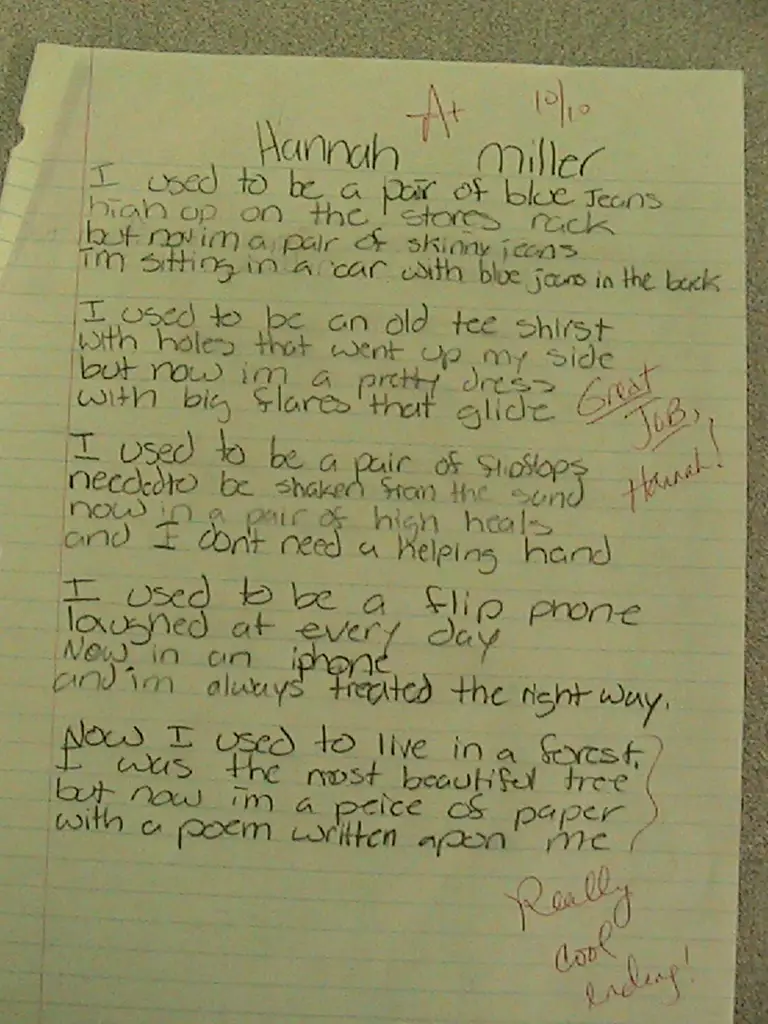 A+ 10/10
Hannah Miller
I used to be a pair of blue jeans
high up on the stores rack
but now im a pair of skinny jeans
i'm sitting in a car with blue jeans in the back
I used to be an old tee shirst
with holes that went up my side
but now im a pretty dress
with big flares that glide
Great
JoB,
Hannah!
I used to be a pair of flipflops
needed to be shaken from the sand
now im a pair of high heals
and I don't need a helping hand
I used to be a flip phone
laughed at every day
Now im an iphone
and i'm always treated the right way.
Now I used to live in a forest.
I was the most beautiful tree
but now i'm a peice of paper
with a poem written apon me
Really
cool
ending!